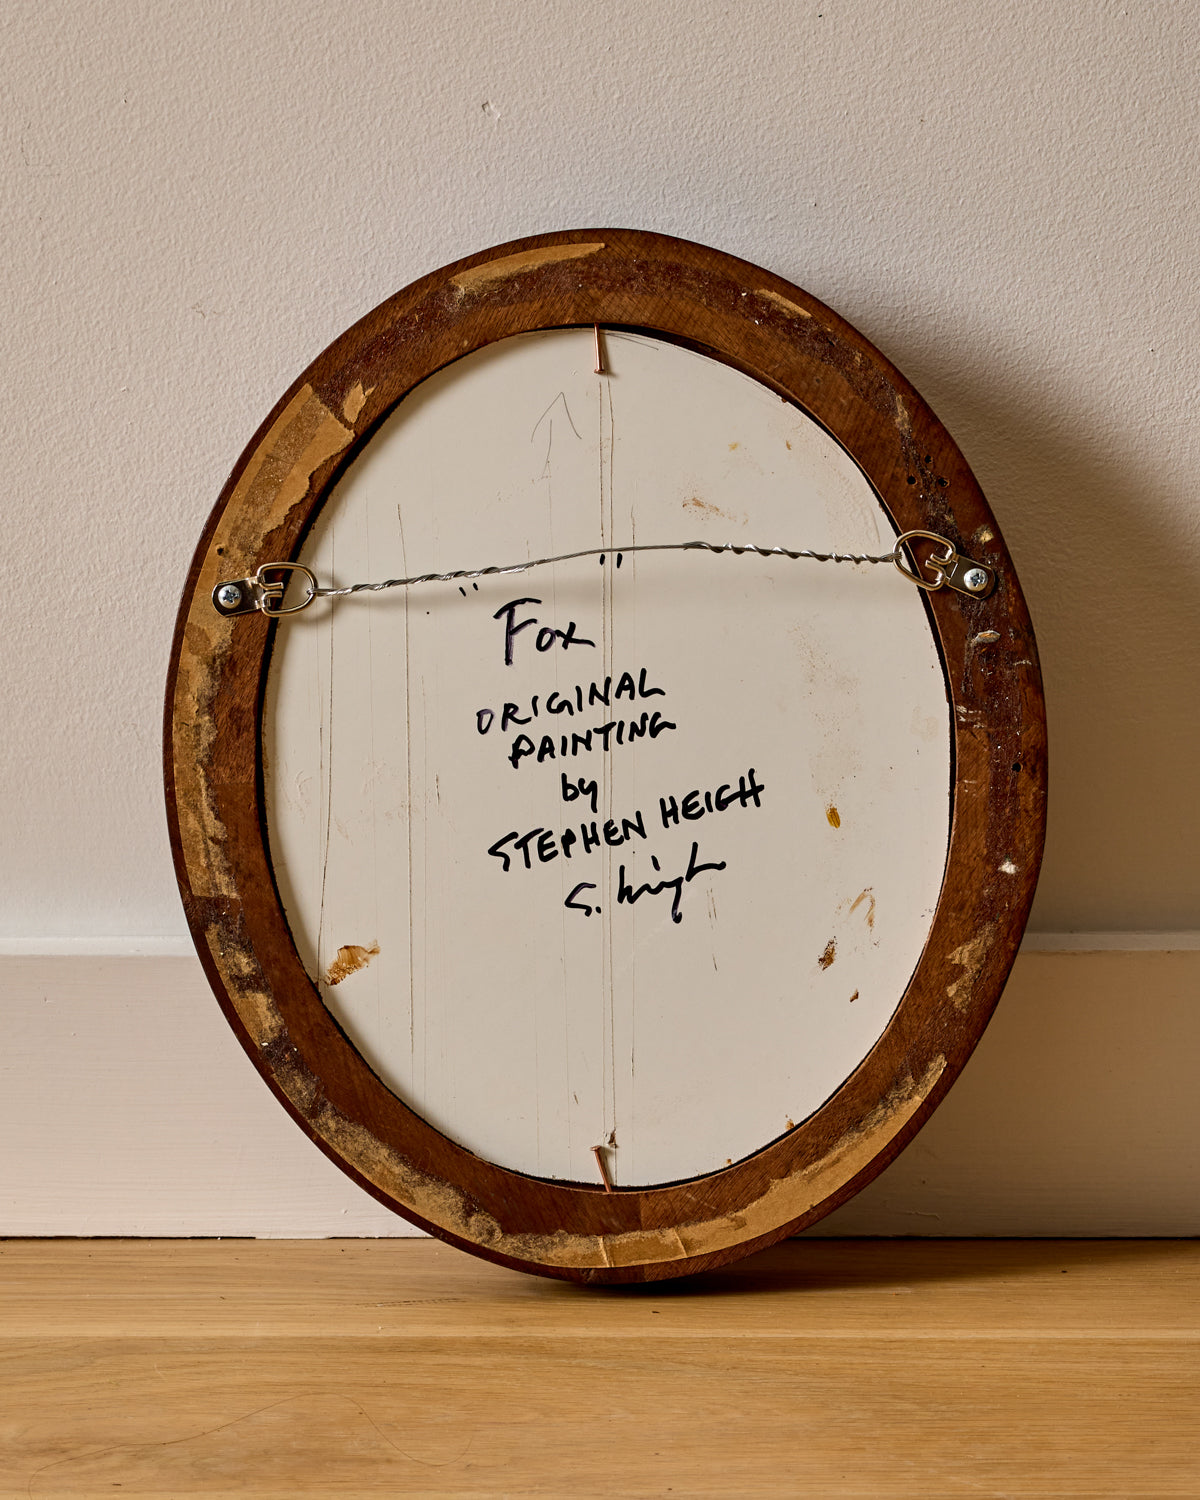 "Fox"
ORIGINAL
PAINTING
by
STEPHEN HEIGH
S. Heigh